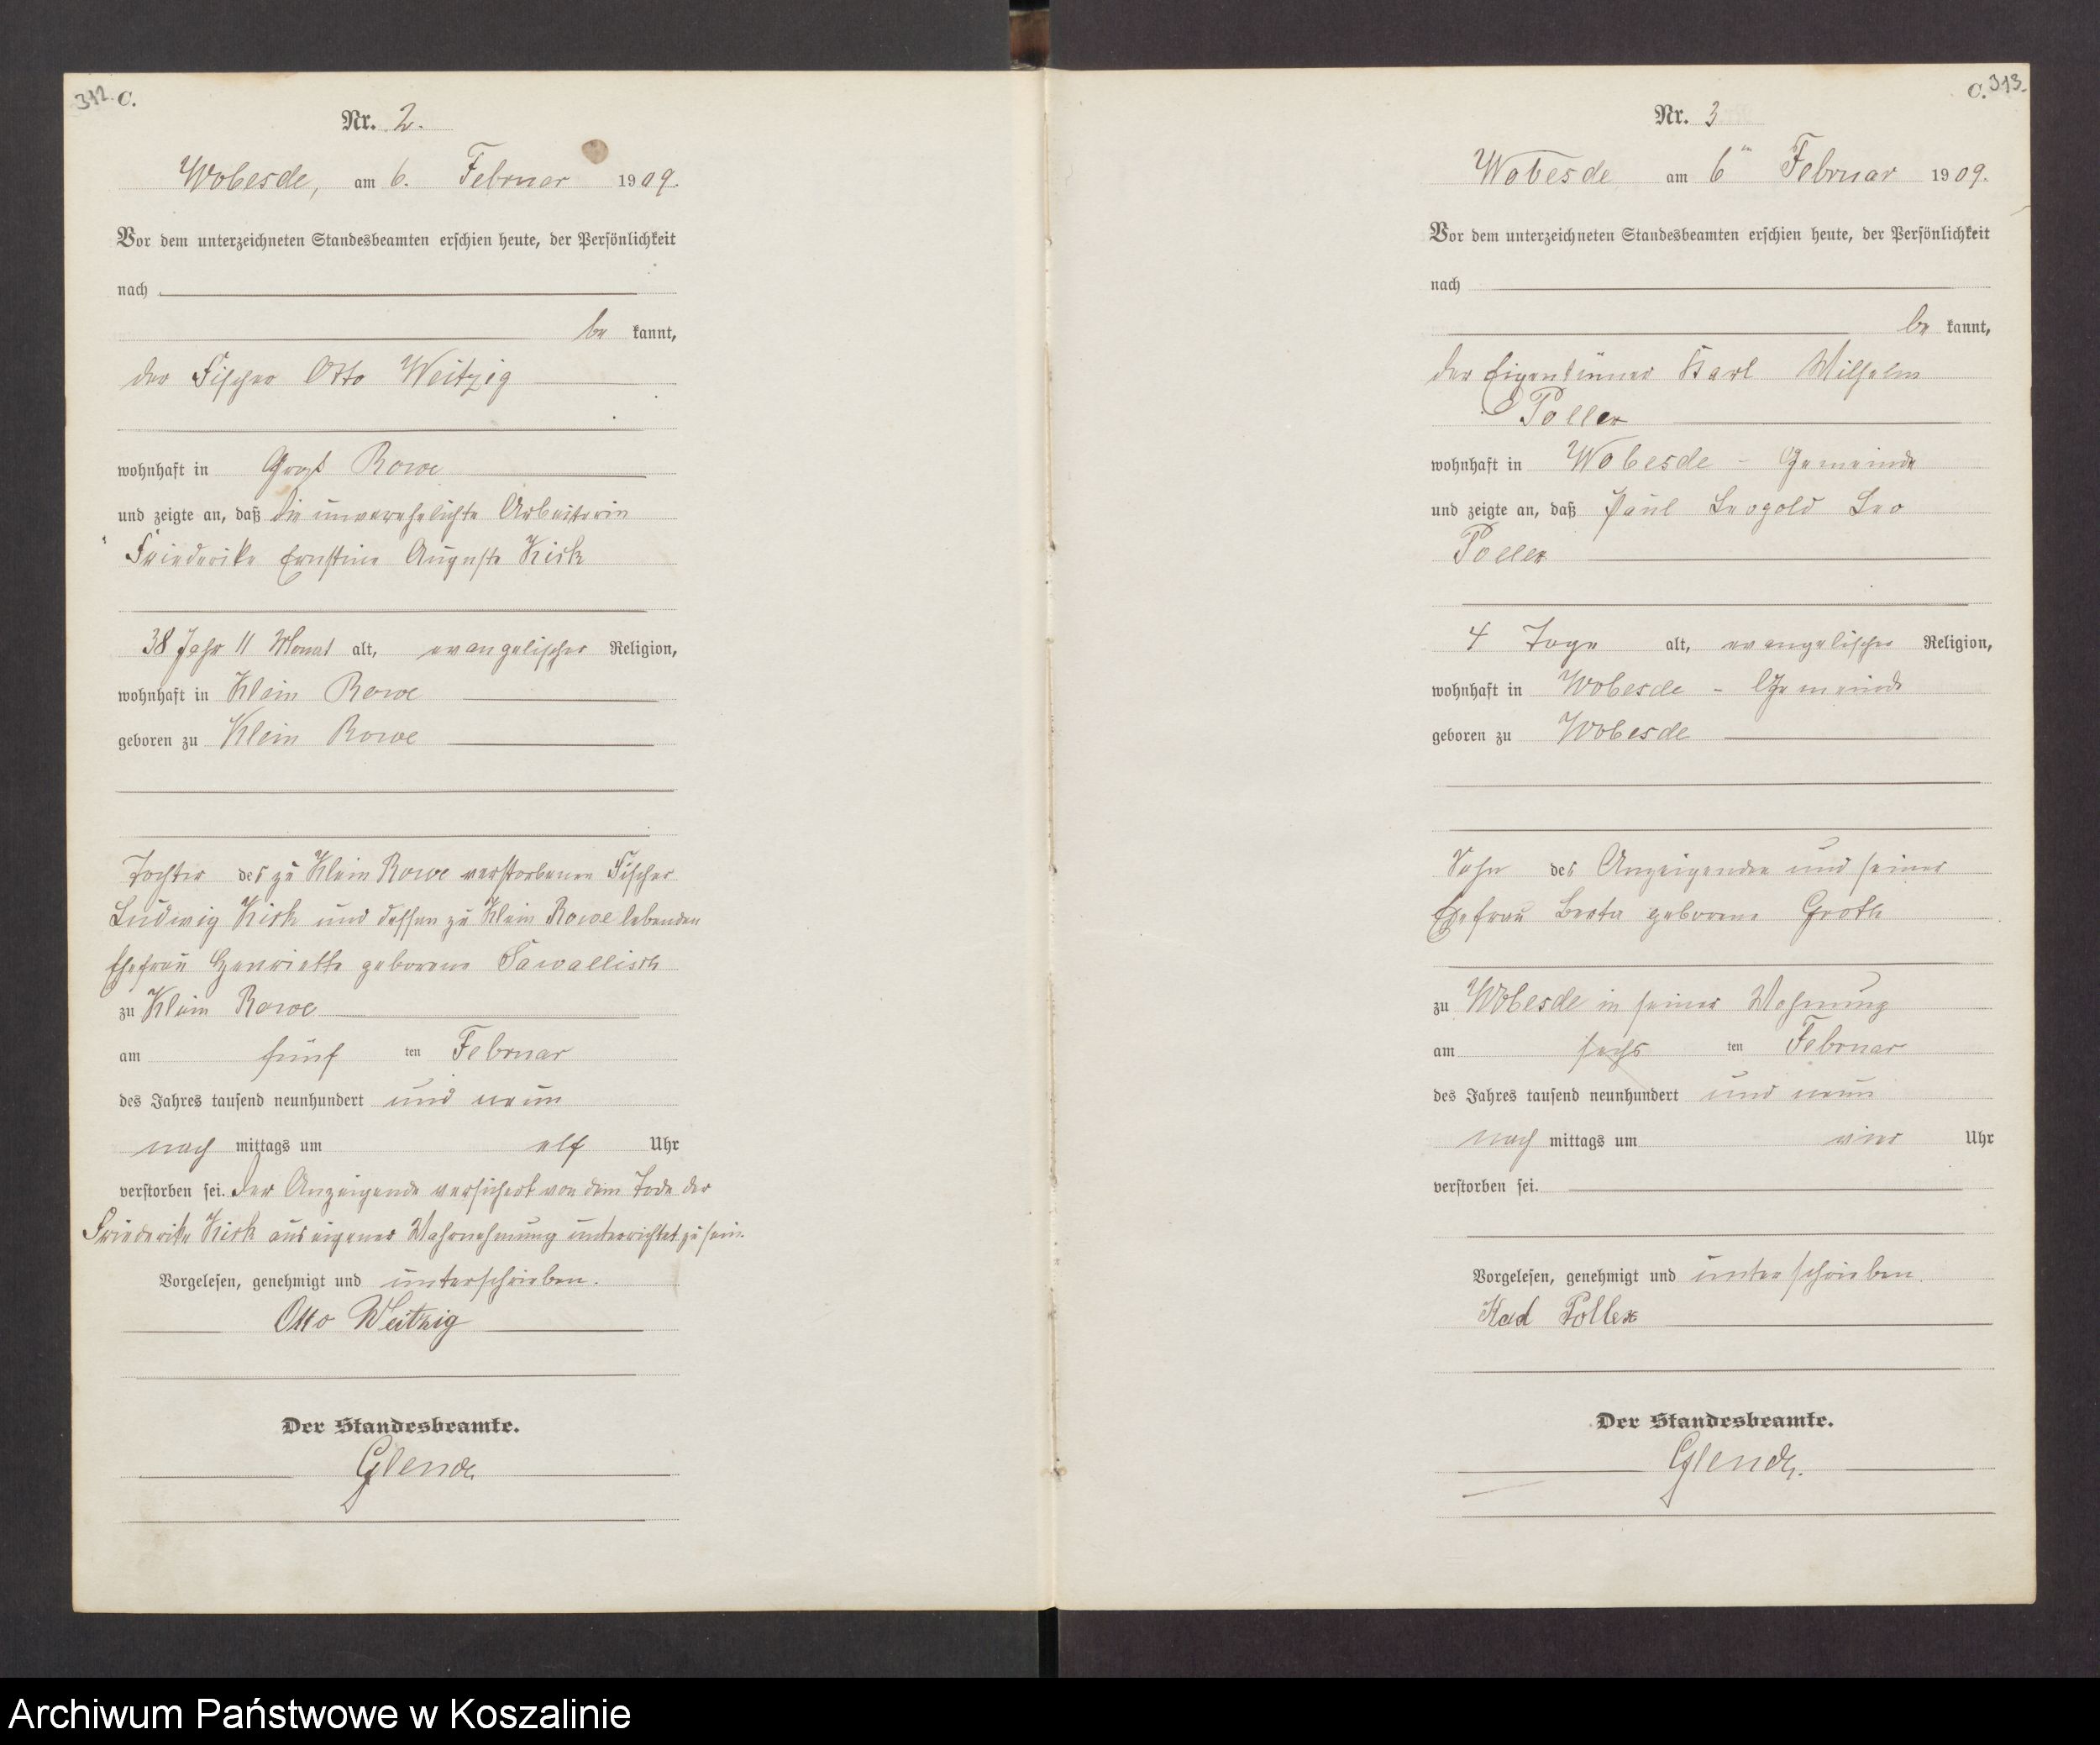 312. C.
Nr. 2.
Wobesde, am 6. Februar 1909.
Vor dem unterzeichneten Standesbeamten erschien heute, der Persönlichkeit
nach
be kannt,
der Fischer Otto Weitzig
wohnhaft in Groß Rowe
und zeigte an, daß die unverehelichte Arbeiterin
Friederike Ernstine Auguste Kisk
38 Jahr 11 Monat alt, evangelischer Religion,
wohnhaft in Klein Rowe
geboren zu Klein Rowe
Tochter des zu Klein Rowe verstorbenen Fischer
Ludwig Kisk und dessen zu Klein Rowe lebenden
Ehefrau Henriette geborene Sawallisch
zu Klein Rowe
am fünf ten Februar
des Jahres tausend neunhundert und neun
nach mittags um elf Uhr
verstorben sei. Der Anzeigende versichert von dem Tode der
Friederike Kisk aus eigener Wahrnehmung unterrichtet zu sein.
Vorgelesen, genehmigt und unterschrieben.
Otto Weitzig
Der Standesbeamte.
Glende
C. 313.
Nr. 3
Wobesde am 6ten Februar 1909.
Vor dem unterzeichneten Standesbeamten erschien heute, der Persönlichkeit
nach
be kannt,
der Eigentümer Karl Wilhelm
Pollex
wohnhaft in Wobesde - Gemeinde
und zeigte an, daß Paul Leopold Leo
Pollex
4 Tage alt, evangelischer Religion,
wohnhaft in Wobesde - Gemeinde
geboren zu Wobesde
Sohn des Anzeigenden und seiner
Ehefrau Berta geborene Groth
zu Wobesde in seiner Wohnung
am sechs ten Februar
des Jahres tausend neunhundert und neun
nach mittags um vier Uhr
verstorben sei.
Vorgelesen, genehmigt und unterschrieben.
Karl Pollex
Der Standesbeamte.
Glende.
Archiwum Państwowe w Koszalinie